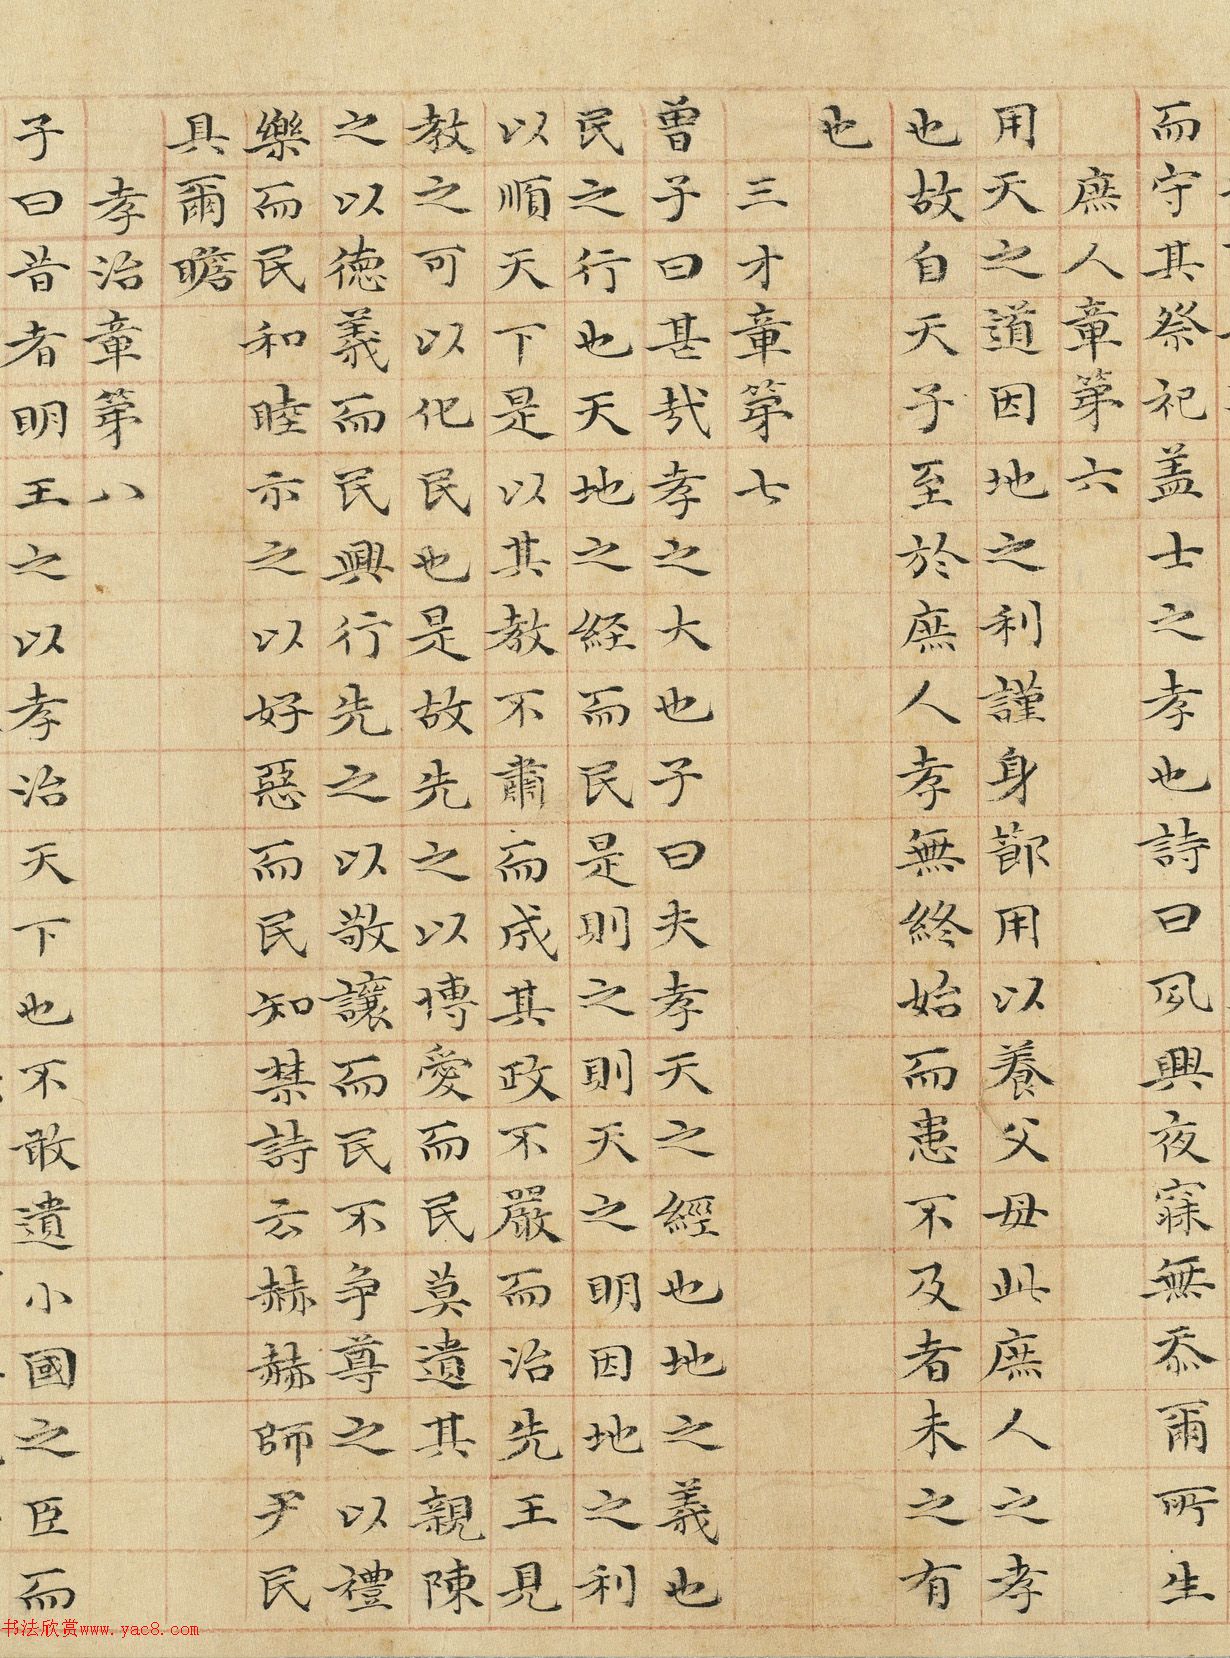 而守其祭祀盖士之孝也詩曰夙興夜寐無忝爾所生
庶人章第六
用天之道因地之利謹身節用以養父母此庶人之孝
也故自天子至於庶人孝無終始而患不及者未之有
也
三才章第七
曾子曰甚哉孝之大也子曰夫孝天之經也地之義也
民之行也天地之経而民是則之則天之明因地之利
以順天下是以其教不肅而成其政不嚴而治先王見
教之可以化民也是故先之以博愛而民莫遺其親陳
之以德義而民興行先之以敬讓而民不争尊之以禮
樂而民和睦示之以好惡而民知禁詩云赫赫師尹民
具爾瞻
孝治章第八
子曰昔者明王之以孝治天下也不敢遺小國之臣而
书法欣赏www.yac8.com